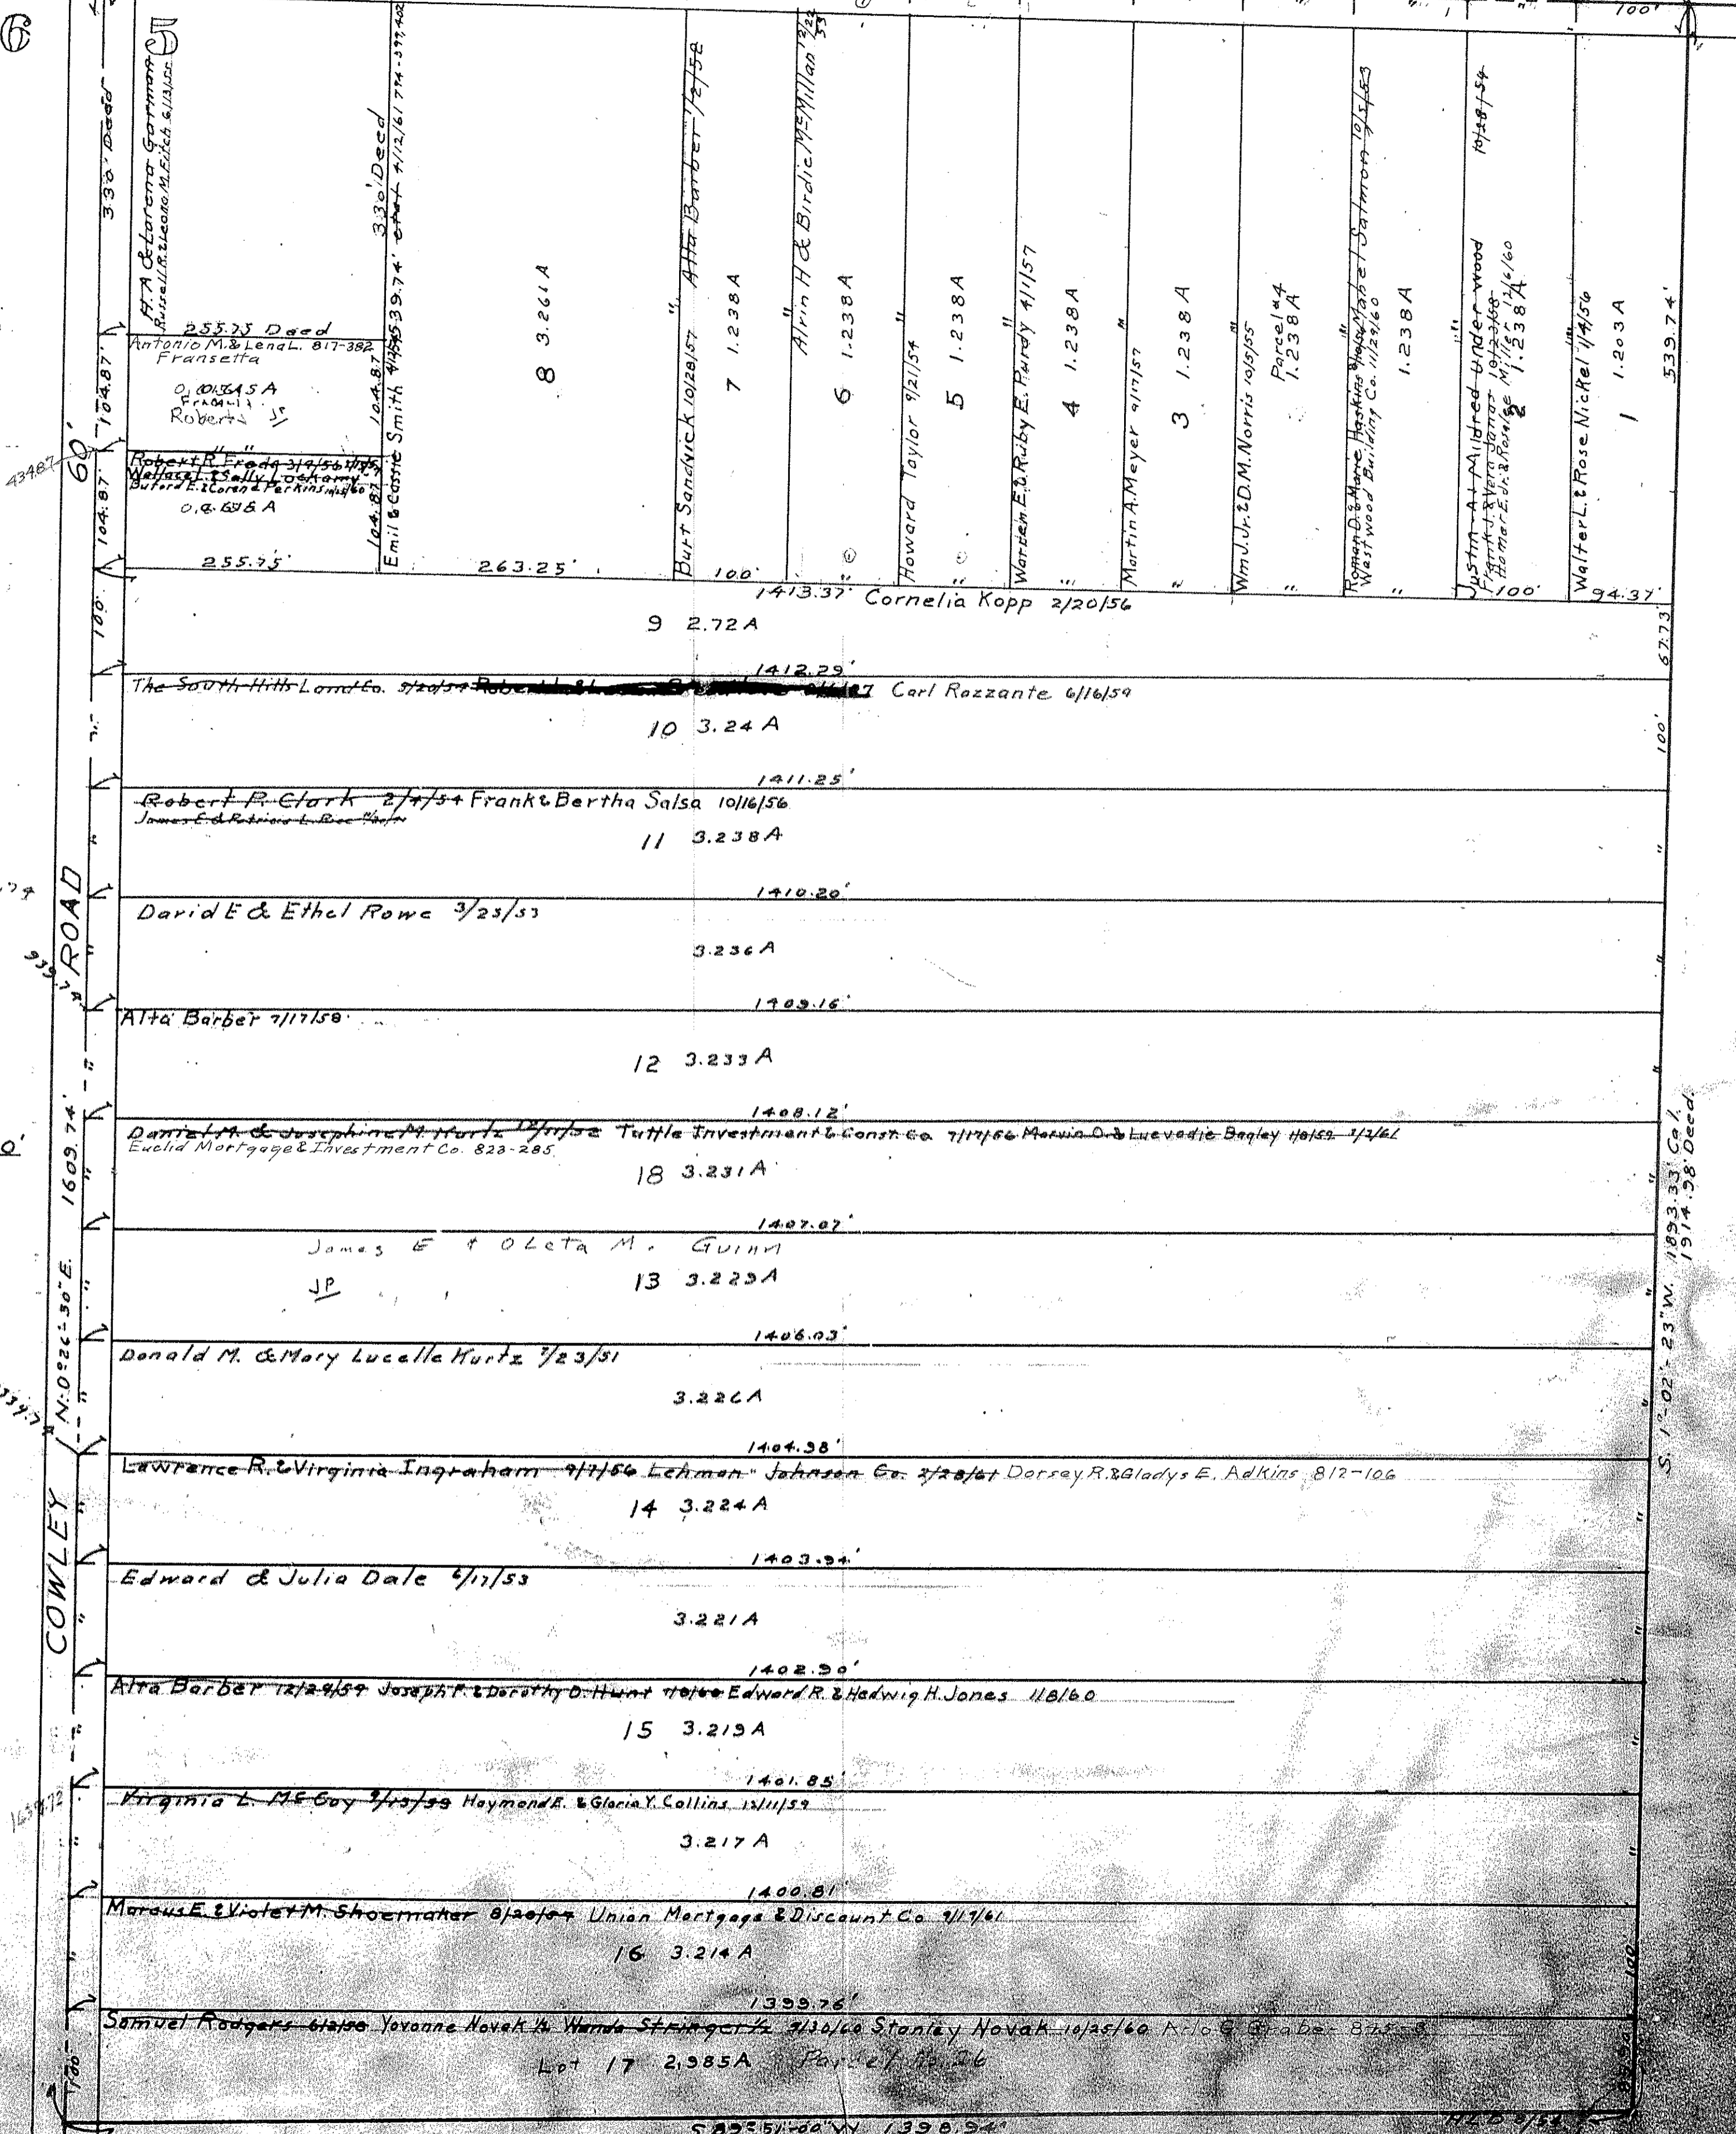 6
5
100'
330' Deed
H.A & Lorena Gorman
Russell R. & Leona M. Fitch 6/13/55
330' Deed
255.75 Deed
Antonio M. & Lena L. 817-382
Fransetta
Roberts JP
" "
Robert R. Freda 3/9/56
Wallace L. & Sally Lockamy
Buford E. & Corena Perkins
104.87'
104.87'
104.87'
104.87'
255.75'
Emil & Cassie Smith
539.74' etal 4/12/61 794-399,402
8 3.261 A
263.25'
Burt Sandwick 10/28/57 " Alta Barber 1/2/58
7 1.238 A
100'
Alvin H & Birdie McMillan 12/22/53
6 1.238 A
"
Howard Taylor 9/21/54 "
5 1.238 A
"
Warren E. & Ruby E. Purdy 4/1/57
4 1.238 A
"
Martin A. Meyer 9/17/57 "
3 1.238 A
"
Wm J. Jr. & D.M. Norris 10/5/55 "
Parcel #4
1.238 A
"
Roman D. & Marie Haskins Mabel Salmon 10/5/53
Westwood Building Co. 11/29/60
1.238 A
"
Justin A & Mildred Underwood 10/28/54
Frank J. & Vera Janos 10/23/58
Homer E. Jr. & Roselee Miller 12/6/60
2 1.238 A
100'
Walter L. & Rose Nickel 1/4/56
1 1.203 A
94.37'
539.74'
43487
60'
1413.37' Cornelia Kopp 2/20/56
9 2.72 A
100'
67.73'
1412.29'
The South Hills Land Co. 5/20/54 Carl Rozzante 6/16/59
10 3.24 A
100'
1411.25'
Robert P. Clark 2/4/54 Frank & Bertha Salsa 10/16/56
11 3.238 A
1410.20'
David E & Ethel Rowe 3/23/53
3.236 A
1409.16'
Alta Barber 7/17/58
12 3.233 A
1408.12'
Daniel M. & Josephine M. Kurtz 12/11/52 Tuttle Investment & Const. Co 7/17/56 Marvin D. & Luevadie Bagley 1/8/59 2/2/61
Euclid Mortgage & Investment Co. 823-285
18 3.231 A
1407.07'
James E & OLeta M. Guinn
JP 13 3.229 A
1406.03'
Donald M. & Mary Lucelle Kurtz 7/23/51
3.226 A
1404.98'
Lawrence R. & Virginia Ingraham 9/7/56 Lehman Johnson Co. 2/28/61 Dorsey R. & Gladys E. Adkins 812-106
14 3.224 A
1403.94'
Edward & Julia Dale 6/17/53
3.221 A
1402.90'
Alta Barber 12/29/59 Joseph P. & Dorothy D. Hunt Edward R. & Hedwig H. Jones 1/8/60
15 3.219 A
1401.85'
Virginia L. McCoy Haymond E. & Gloria Y. Collins 12/11/59
3.217 A
1400.81'
Marcus E. & Violet M. Shoemaker Union Mortgage & Discount Co 9/19/61
16 3.214 A
100'
1399.76'
Samuel Rodgers Yovonne Novak ½ Wanda Stringer ½ 9/30/60 Stanley Novak 10/25/60 Arlo G. Graber
Lot 17 2.985 A Parcel No. 26
100'
S 89°-51'-00" W 1398.94'
COWLEY ROAD
N. 0°26'-30" E. 1609.74'
S. 1°-02'-23" W. 1893.33' Cal.
1914.98' Deed